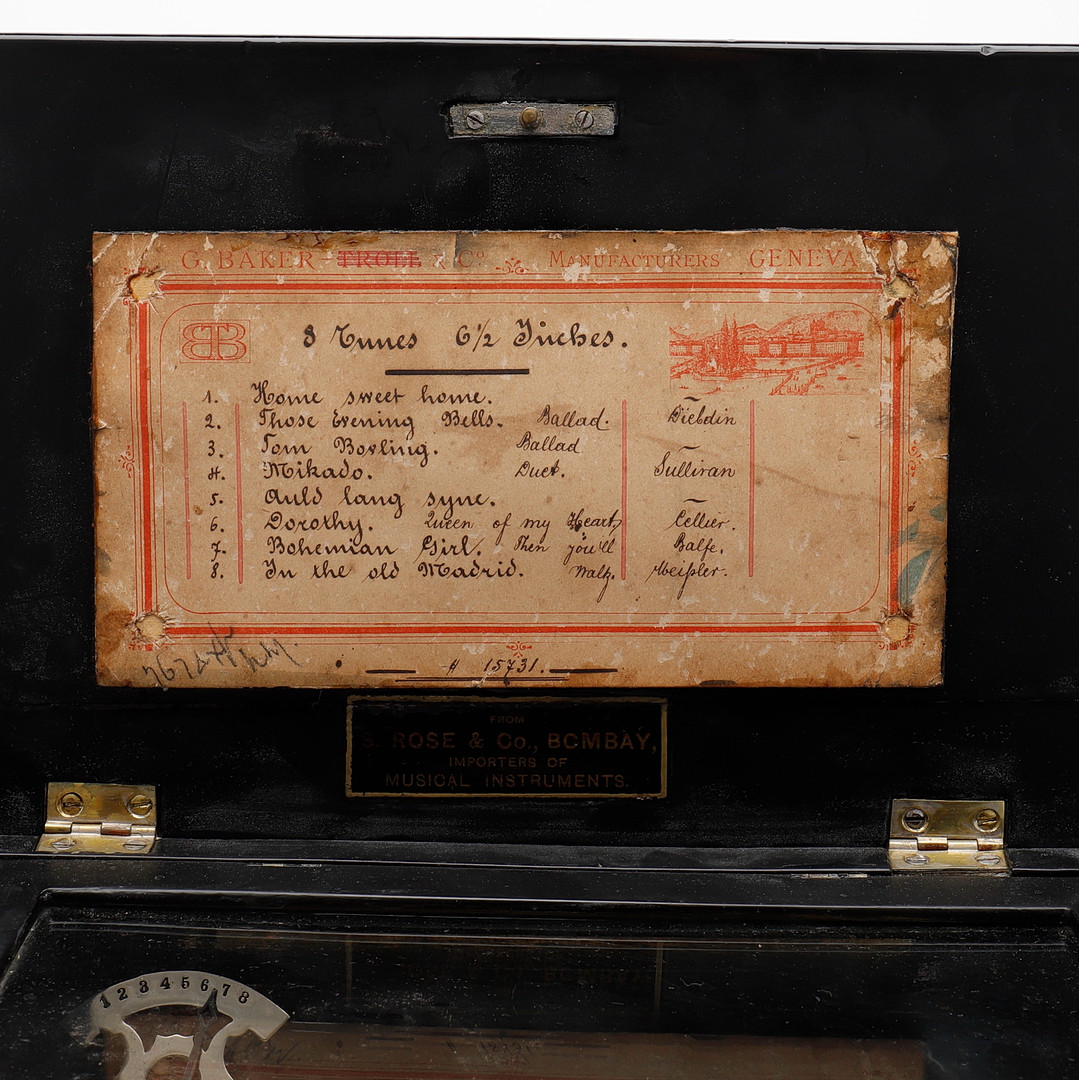 G. BAKER - TROLL & Co. MANUFACTURERS GENEVA
BTB
8 Tunes 6½ Inches.
1. Home sweet home.
2. Those Evening Bells. Ballad. Diebdin
3. Tom Bovling. Ballad
4. Mikado. Duet. Sullivan
5. Auld lang syne.
6. Dorothy. Queen of my Heart, Cellier.
7. Bohemian Girl. Then you'll Balfe.
8. In the old Madrid. Waltz.
# 15731.
FROM
S. ROSE & Co., BOMBAY,
IMPORTERS OF
MUSICAL INSTRUMENTS.
1 2 3 4 5 6 7 8